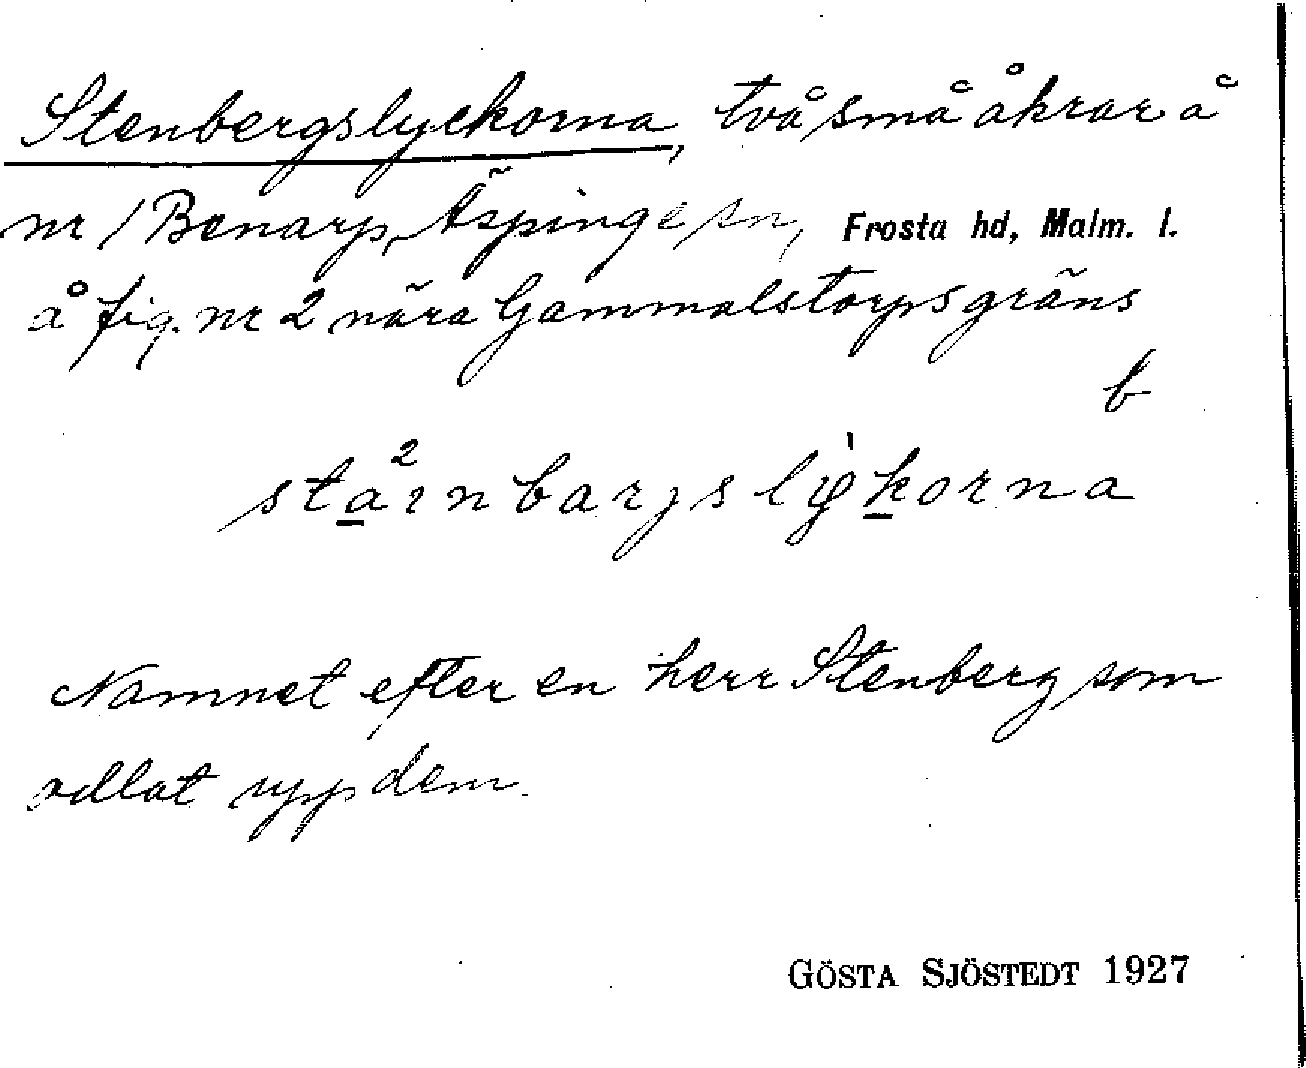 Stenbergslyckorna, två små åkrar å
nr 1 Benarp, Äspinge sn, Frosta hd, Malm. l.
å fig. nr 2 nära Gammalstorps gräns
b
stainbarjslykorna
Namnet efter en herr Stenberg som
odlat upp dem.
GÖSTA SJÖSTEDT 1927